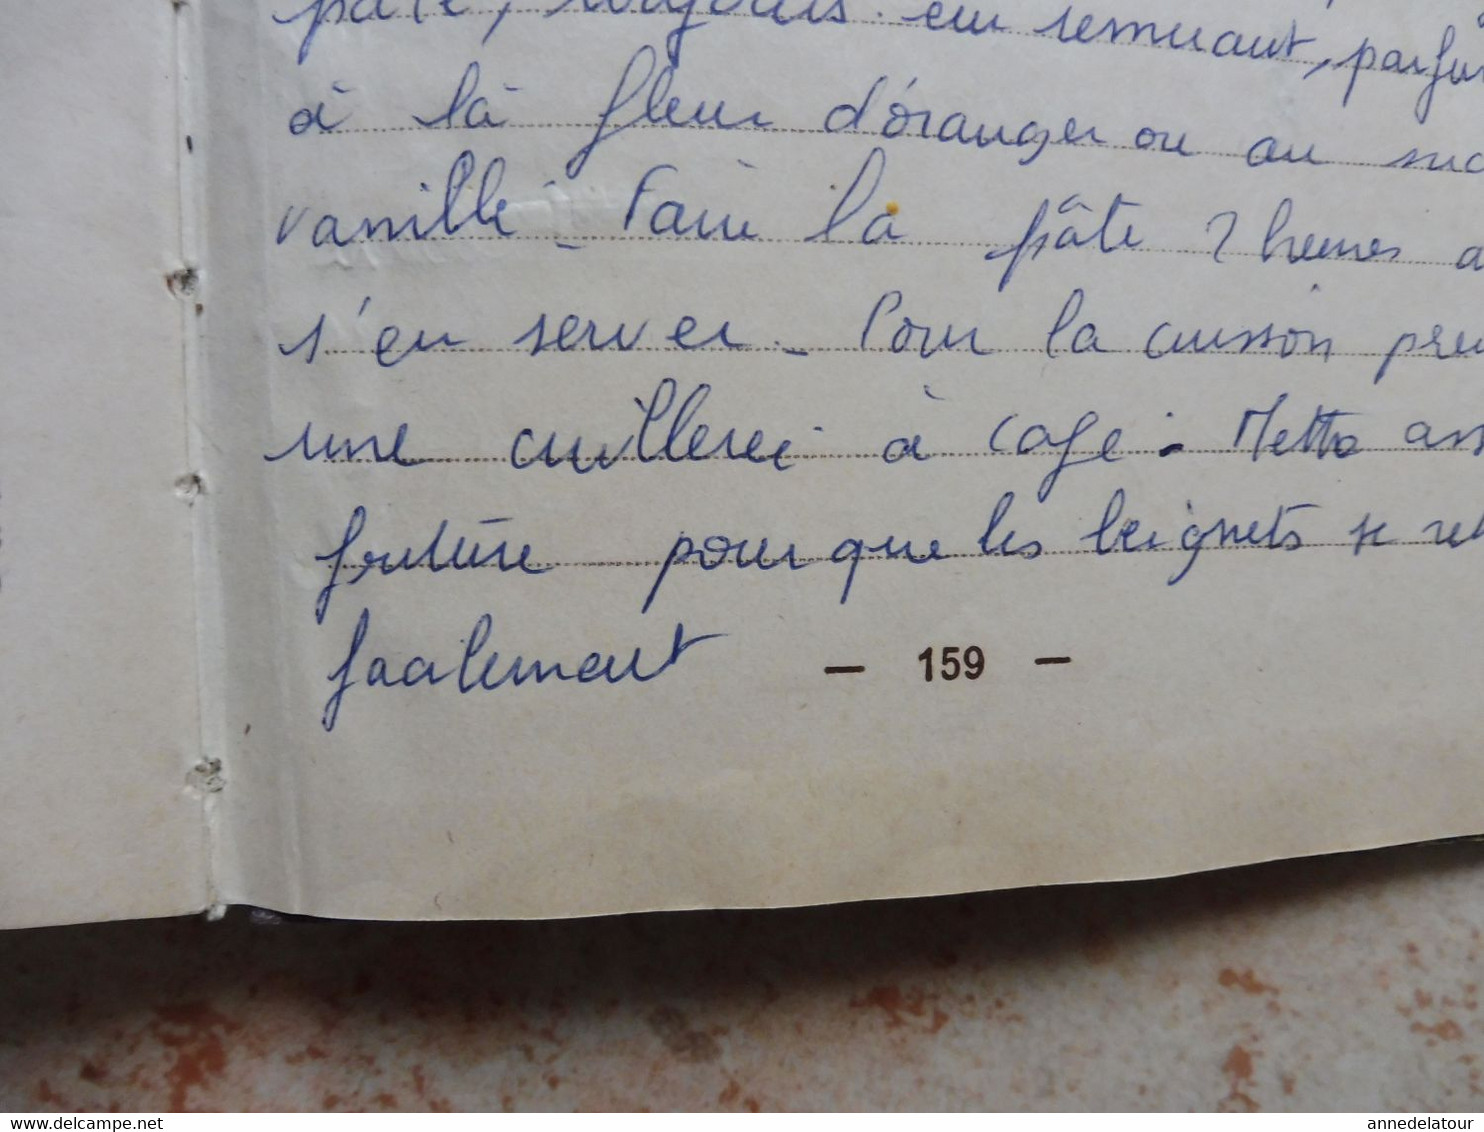 pâte, toujours en remuant, parfu
à la fleur d'oranger ou au suc
vanillé - Faire la pâte 2 heures a
s'en server - Pour la cuisson pren
une cuillerée à café. Mettre ass
friture pour que les beignets se ret
facilement
— 159 —
www.delcampe.net
annedelatour